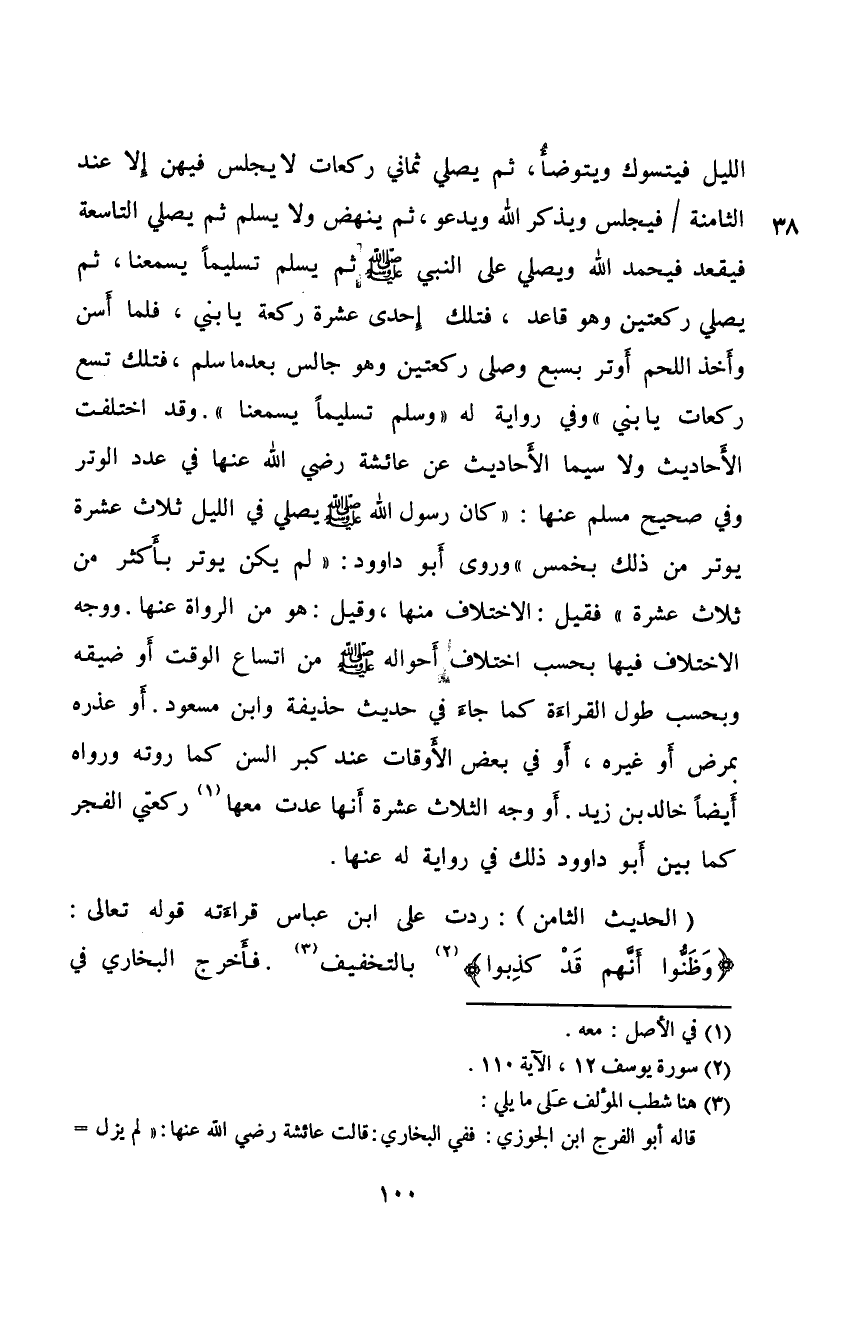 الليل فيتسوك ويتوضأُ، ثم يصلي ثماني ركعات لا يجلس فيهن إلا عند
٣٨ الثامنة / فيجلس ويذكر الله ويدعو ، ثم ينهض ولا يسلم ثم يصلي التاسعة
فيقعد فيحمد الله ويصلي على النبي ﷺ ثم يسلم تسليماً يسمعنا ، ثم
يصلي ركعتين وهو قاعد ، فتلك إحدى عشرة ركعة يا بني ، فلما أَسن
وأَخذ اللحم أَوتر بسبع وصلى ركعتين وهو جالس بعدما سلم ، فتلك تسع
ركعات يا بني » وفي رواية له « وسلم تسليماً يسمعنا » . وقد اختلفت
الأَحاديث ولا سيما الأَحاديث عن عائشة رضي الله عنها في عدد الوتر
وفي صحيح مسلم عنها : « كان رسول الله ﷺ يصلي في الليل ثلاث عشرة
يوتر من ذلك بخمس » وروى أَبو داوود : « لم يكن يوتر بأَكثر من
ثلاث عشرة » فقيل : الاختلاف منها ، وقيل : هو من الرواة عنها . ووجه
الاختلاف فيها بحسب اختلاف أَحواله ﷺ من اتساع الوقت أَو ضيقه
وبحسب طول القراءَة كما جاءَ في حديث حذيفة وابن مسعود . أَو عذره
بمرض أَو غيره ، أَو في بعض الأَوقات عند كبر السن كما روته ورواه
أَيضاً خالد بن زيد . أَو وجه الثلاث عشرة أَنها عدت معها (١) ركعتي الفجر
كما بين أَبو داوود ذلك في رواية له عنها .
( الحديث الثامن ) : ردت على ابن عباس قراءَته قوله تعالى :
﴿وَظَنُّوا أَنَّهم قَدْ كذِبوا﴾ (٢) بالتخفيف (٣) . فأَخرج البخاري في
(١) في الأصل : معه .
(٢) سورة يوسف ١٢ ، الآية ١١٠ .
(٣) هنا شطب المؤلف على ما يلي :
قاله أبو الفرج ابن الجوزي : ففي البخاري : قالت عائشة رضي الله عنها : « لم يزل =
١٠٠